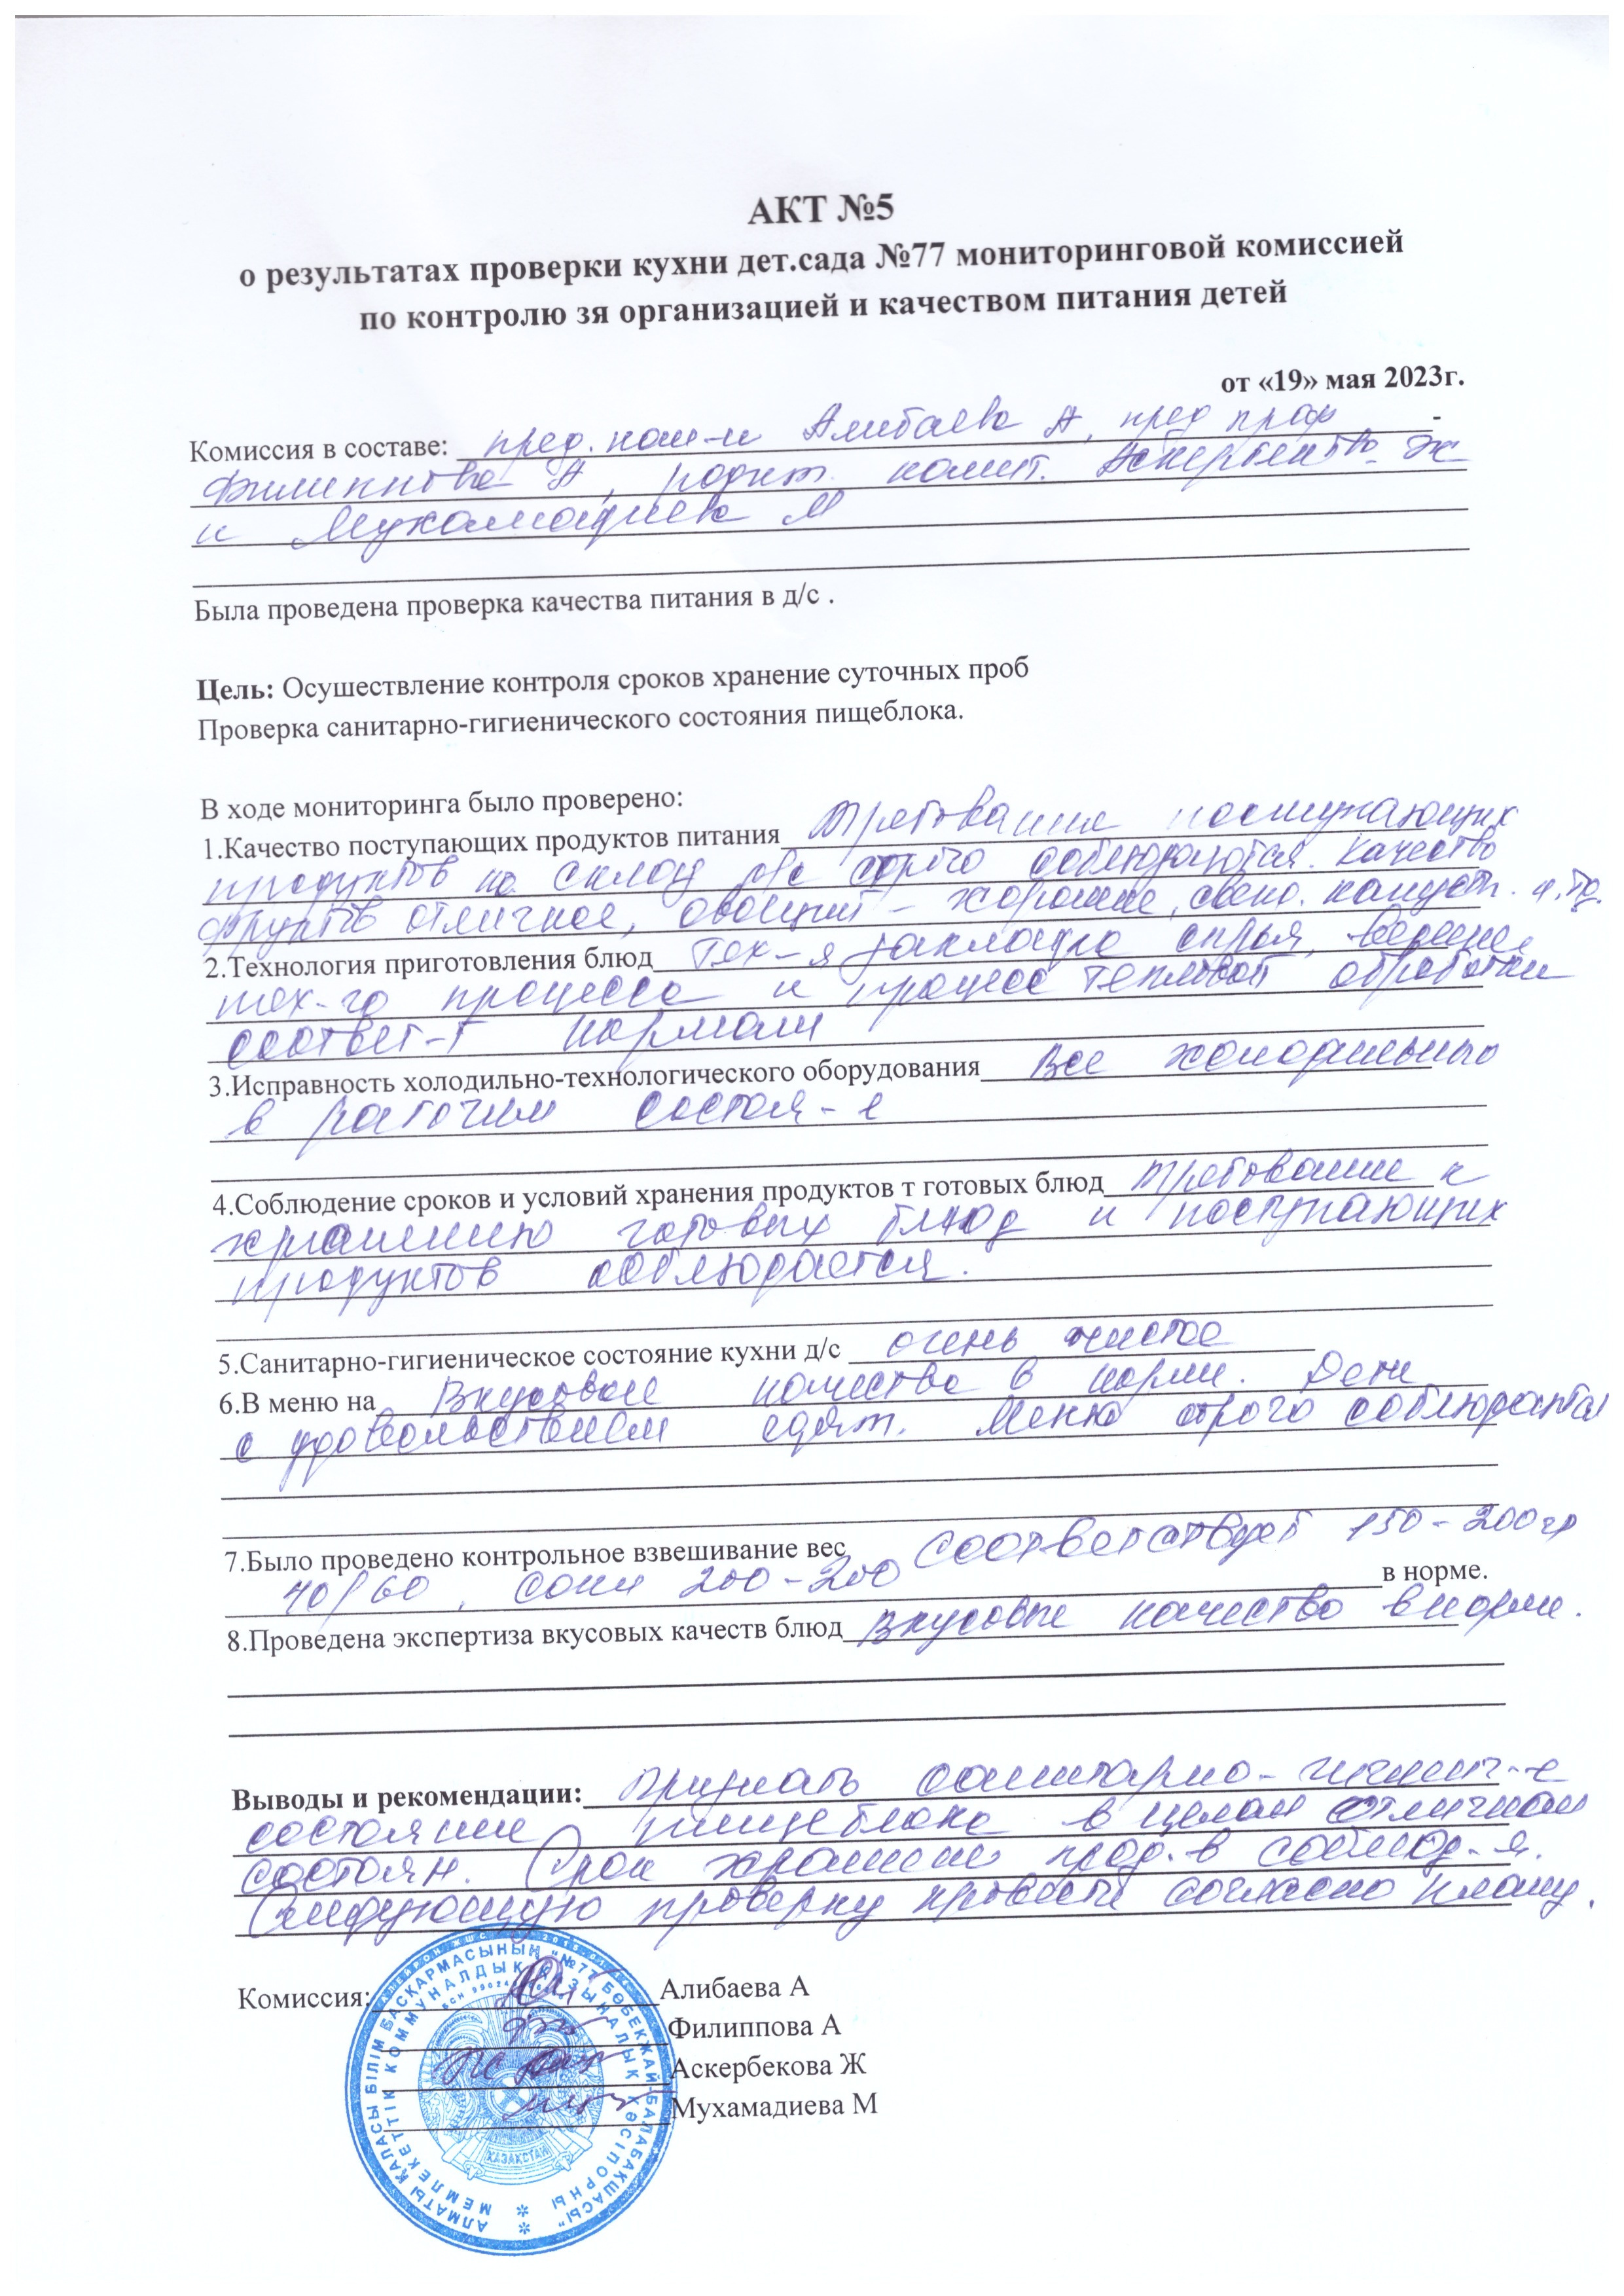 АКТ №5
о результатах проверки кухни дет.сада №77 мониторинговой комиссией
по контролю зя организацией и качеством питания детей
от «19» мая 2023г.
Комиссия в составе: пред. ком-и Алибаева А, пред проф -
Филиппова А, родит. комит. Аскербекова Ж
и Мухамадиева М
Была проведена проверка качества питания в д/с .
Цель: Осушествление контроля сроков хранение суточных проб
Проверка санитарно-гигиенического состояния пищеблока.
В ходе мониторинга было проверено:
1.Качество поступающих продуктов питания Требования поступающих
продуктов на склад д/с строго соблюдаются. Качество
фруктов отличное, овощий - хорошие, свек. капуст. и.тд.
2.Технология приготовления блюд Тех-я закладка сырья, ведение
тех-го процесса и процесс тепловой обработки
соответ-т нормам
3.Исправность холодильно-технологического оборудования Все холодильники
в рабочим состоя-е
4.Соблюдение сроков и условий хранения продуктов т готовых блюд Требование к
хранению готовых блюд и поступающих
продуктов соблюдается.
5.Санитарно-гигиеническое состояние кухни д/с очень чистое
6.В меню на Вкусовые качества в норме. Дети
с удовольствием едят. Меню строго соблюдается
7.Было проведено контрольное взвешивание вес соответствует 150-200гр
40/60, соки 200-200 в норме.
8.Проведена экспертиза вкусовых качеств блюд Вкусовые качество в норме.
Выводы и рекомендации: Признать санитарно-гигиен-е
состояние пищеблока в целом отличном
состоян. Срок хранения прод.-в соблюд-я.
Следующую проверку провести согласно плану.
Комиссия: Алибаева А
Филиппова А
Аскербекова Ж
Мухамадиева М
АЛМАТЫ ҚАЛАСЫ БІЛІМ БАСҚАРМАСЫНЫҢ "№77 БӨБЕКЖАЙ-БАЛАБАҚШАСЫ"
МЕМЛЕКЕТТІК КОММУНАЛДЫҚ ҚАЗЫНАЛЫҚ КӘСІПОРНЫ
ҚАЗАҚСТАН